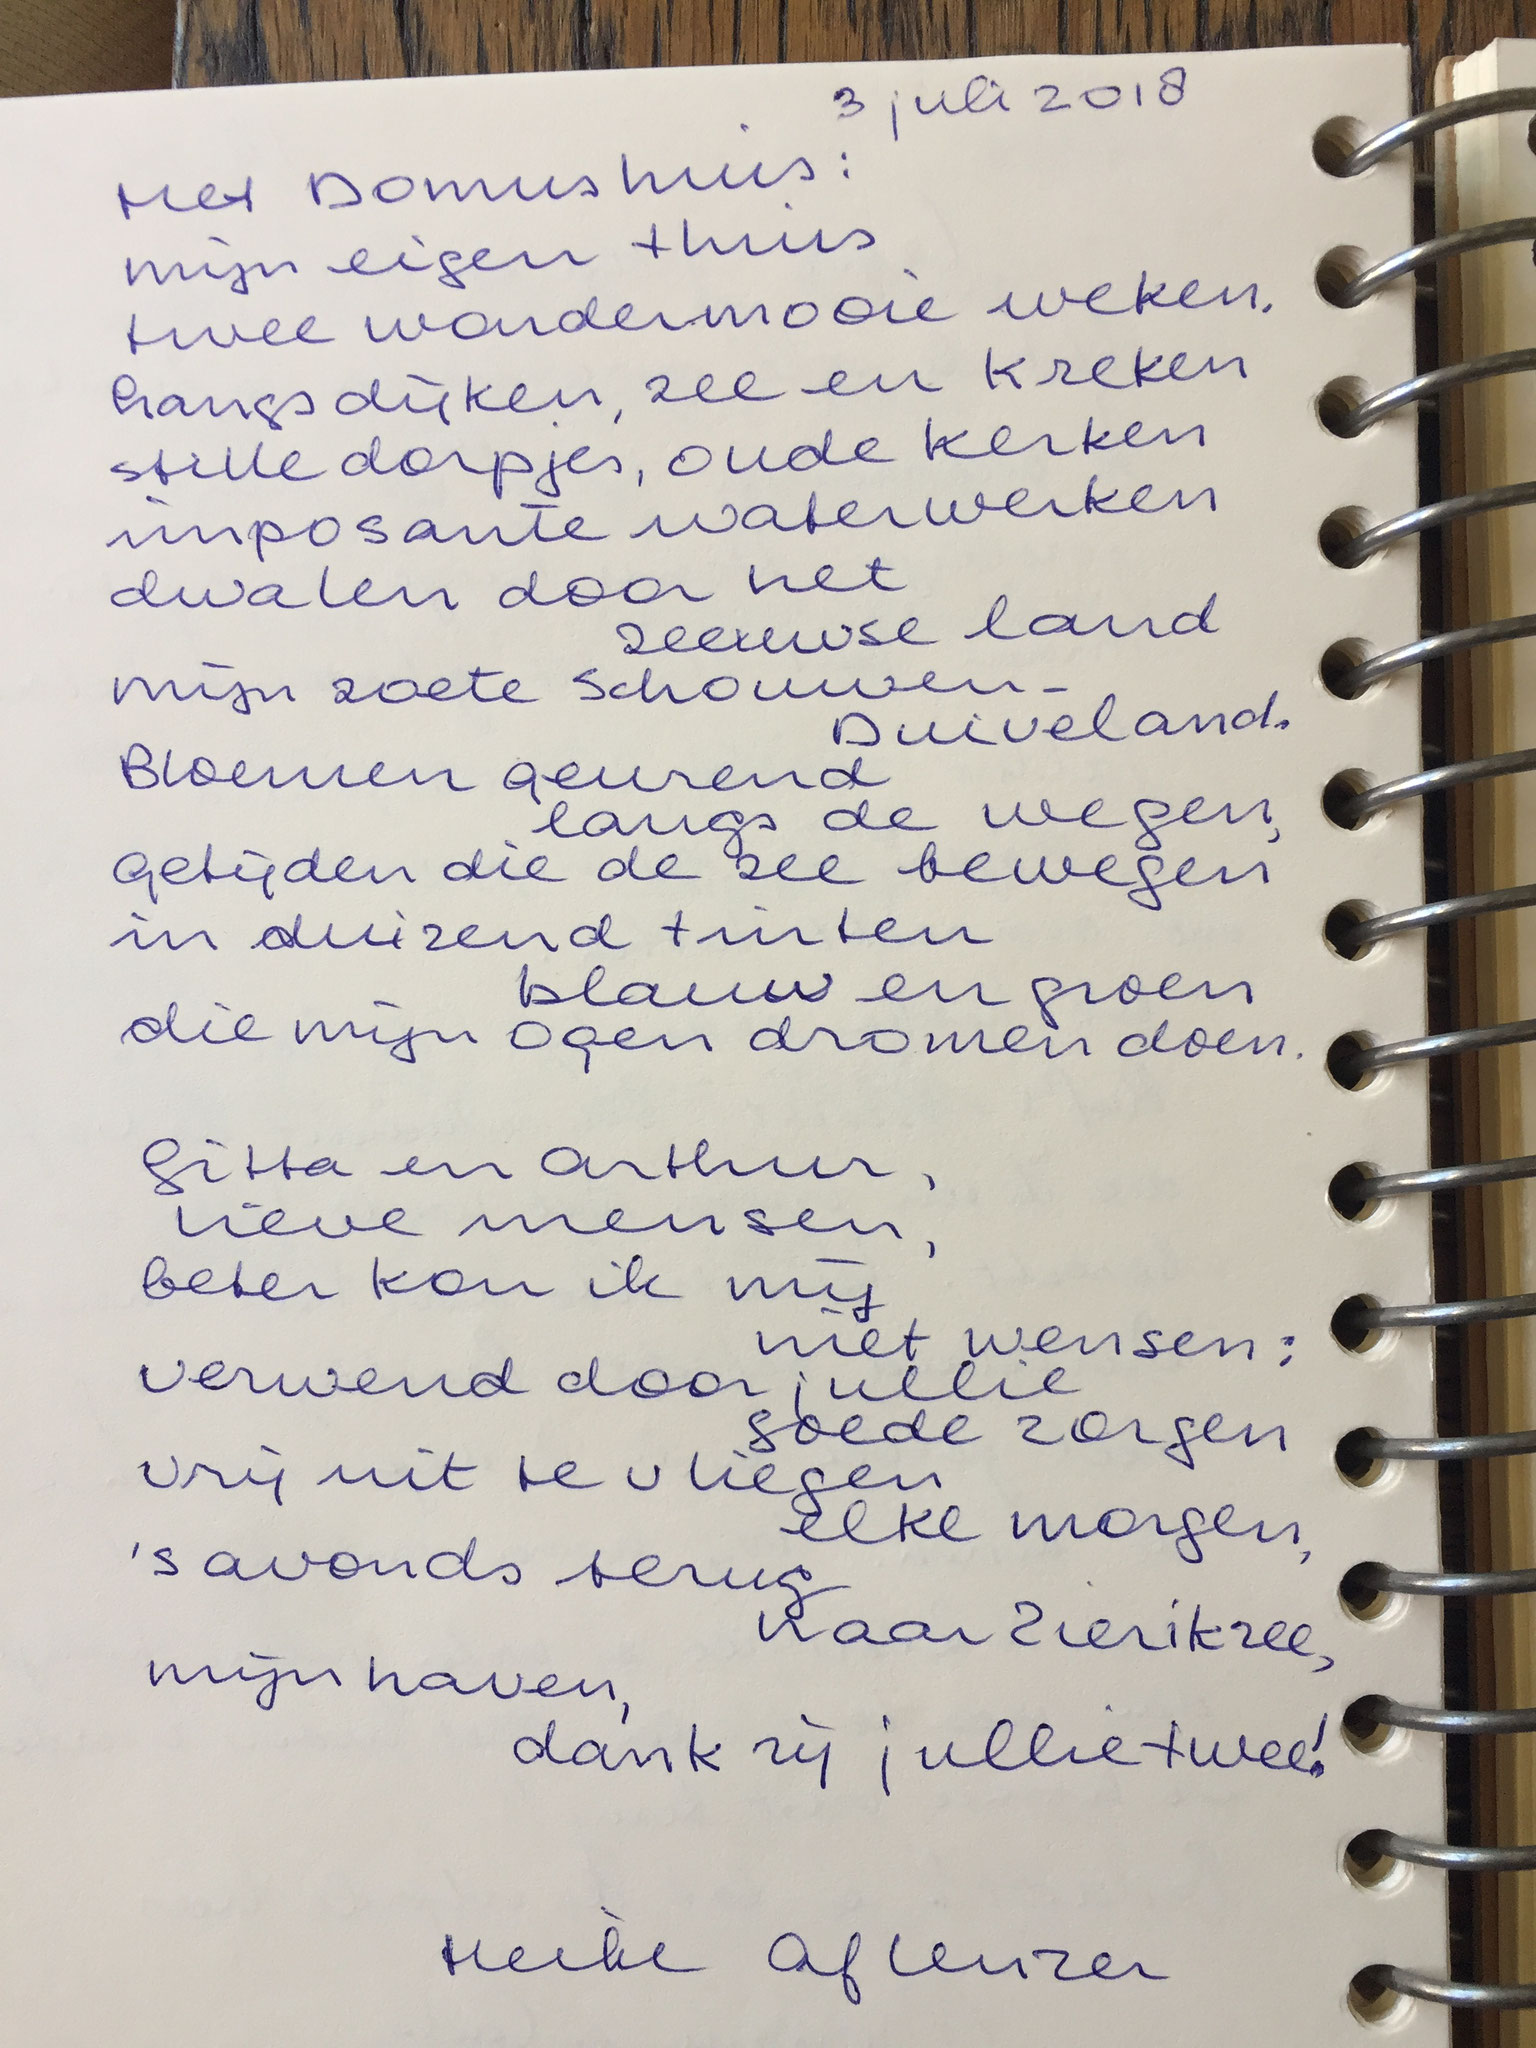 3 juli 2018
Het Domushuis:
mijn eigen thuis
twee wondermooie weken.
langs dijken, zee en kreken
stille dorpjes, oude kerken
imposante waterwerken
dwalen door het
zeeuwse land
mijn zoete Schouwen-
Duiveland.
Bloemen geurend
langs de wegen,
getijden die de zee bewegen
in duizend tinten
blauw en groen
die mijn ogen dromen doen.
Gitta en Arthur,
lieve mensen,
beter kon ik mij
niet wensen:
verwend door jullie
goede zorgen
vrij uit te vliegen
elke morgen,
's avonds terug
naar Zierikzee,
mijn haven,
dank zij jullie twee!
Heike